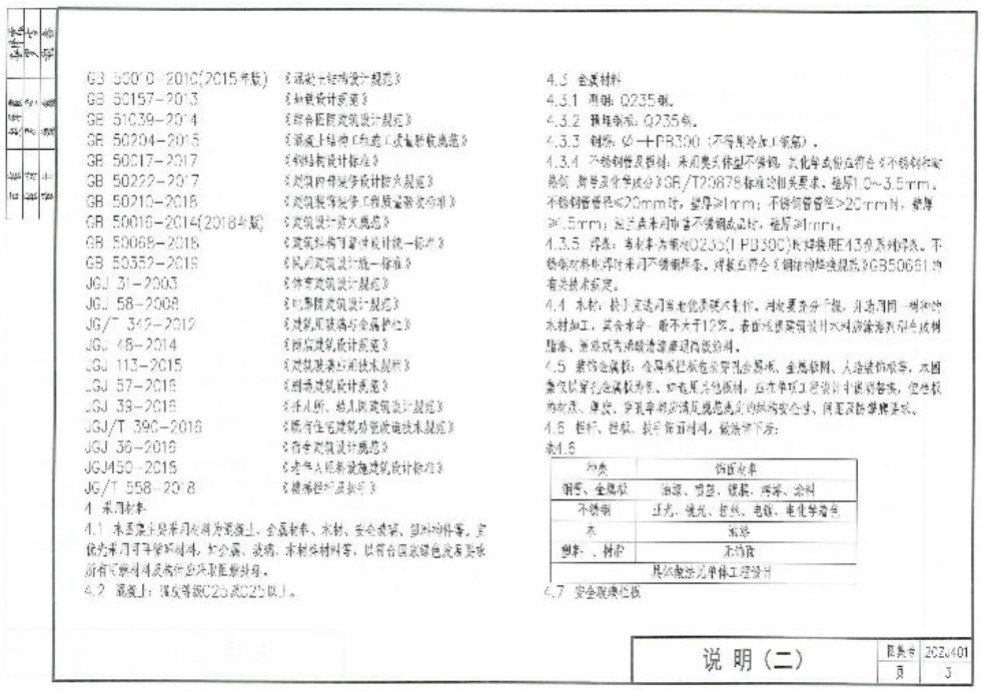 GB 50010-2010(2015年版) 《混凝土结构设计规范》
GB 50157-2013 《地铁设计规范》
GB 51039-2014 《综合医院建筑设计规范》
GB 50204-2015 《混凝土结构工程施工质量验收规范》
GB 50017-2017 《钢结构设计标准》
GB 50222-2017 《建筑内部装修设计防火规范》
GB 50210-2018 《建筑装饰装修工程质量验收标准》
GB 50016-2014(2018年版) 《建筑设计防火规范》
GB 50068-2018 《建筑结构可靠性设计统一标准》
GB 50352-2019 《民用建筑设计统一标准》
JGJ 31-2003 《体育建筑设计规范》
JGJ 58-2008 《电影院建筑设计规范》
JG/T 342-2012 《建筑用玻璃与金属护栏》
JGJ 48-2014 《商店建筑设计规范》
JGJ 113-2015 《建筑玻璃应用技术规程》
JGJ 57-2016 《剧场建筑设计规范》
JGJ 39-2016 《托儿所、幼儿园建筑设计规范》
JGJ/T 390-2016 《既有住宅建筑功能改造技术规范》
JGJ 36-2016 《宿舍建筑设计规范》
JGJ450-2018 《老年人照料设施建筑设计标准》
JG/T 558-2018 《楼梯栏杆及扶手》
4 采用材料
4.1 本图集主要采用材料为混凝土、金属材料、木材、安全玻璃、塑料构件等。宜
优先采用可再循环材料，如金属、玻璃、木材等材料等，以符合国家绿色发展要求
所有可燃材料及构件应采取阻燃处理。
4.2 混凝土：强度等级C25及C25以上。
4.3 金属材料
4.3.1 型钢：Q235钢。
4.3.2 预埋钢板：Q235钢。
4.3.3 钢筋：Φ—HPB300（不得用冷加工钢筋）。
4.3.4 不锈钢管及板材：采用奥氏体型不锈钢，其化学成份应符合《不锈钢和耐
热钢 牌号及化学成分》GB/T20878标准的相关要求。壁厚1.0~3.5mm。
不锈钢管管径≤20mm时，壁厚≥1mm；不锈钢管管径>20mm时，壁厚
≥1.5mm；法兰盘采用市售不锈钢成品时，壁厚≥1mm。
4.3.5 焊条：当材料为钢材Q235(HPB300)时焊接用E43型系列焊条。不
锈钢材料电焊时采用不锈钢焊条。焊接应符合《钢结构焊接规范》GB50661的
有关技术规定。
4.4 木材：扶手宜选用当地优质硬木制作。用材要充分干燥，并选用同一树种的
木材加工，其含水率一般不大于12%。表面根据建筑设计
脂漆、清漆或
4.5 装饰金属板：金属板栏板包括穿孔金属板、金属板网、人造装饰板等，本图
集仅以穿孔金属板为例。如选用其他板材，应在单项工程设计中说明替换，但栏板
的材质、厚度、穿孔率都应满足规范规定的结构安全性、间距及防攀爬要求。
4.6 栏杆、栏板、扶手饰面材料，做法如下表：
表4.6
种类 饰面效果
钢管、金属板 油漆、喷塑、镀膜、烤漆、涂料
不锈钢 亚光、镜光、拉丝、电镀、电化学着色
木 油漆
塑料、树脂 无饰面
具体做法见单体工程设计
4.7 安全玻璃栏板
说 明(二)
图集号 20ZJ401
页 3